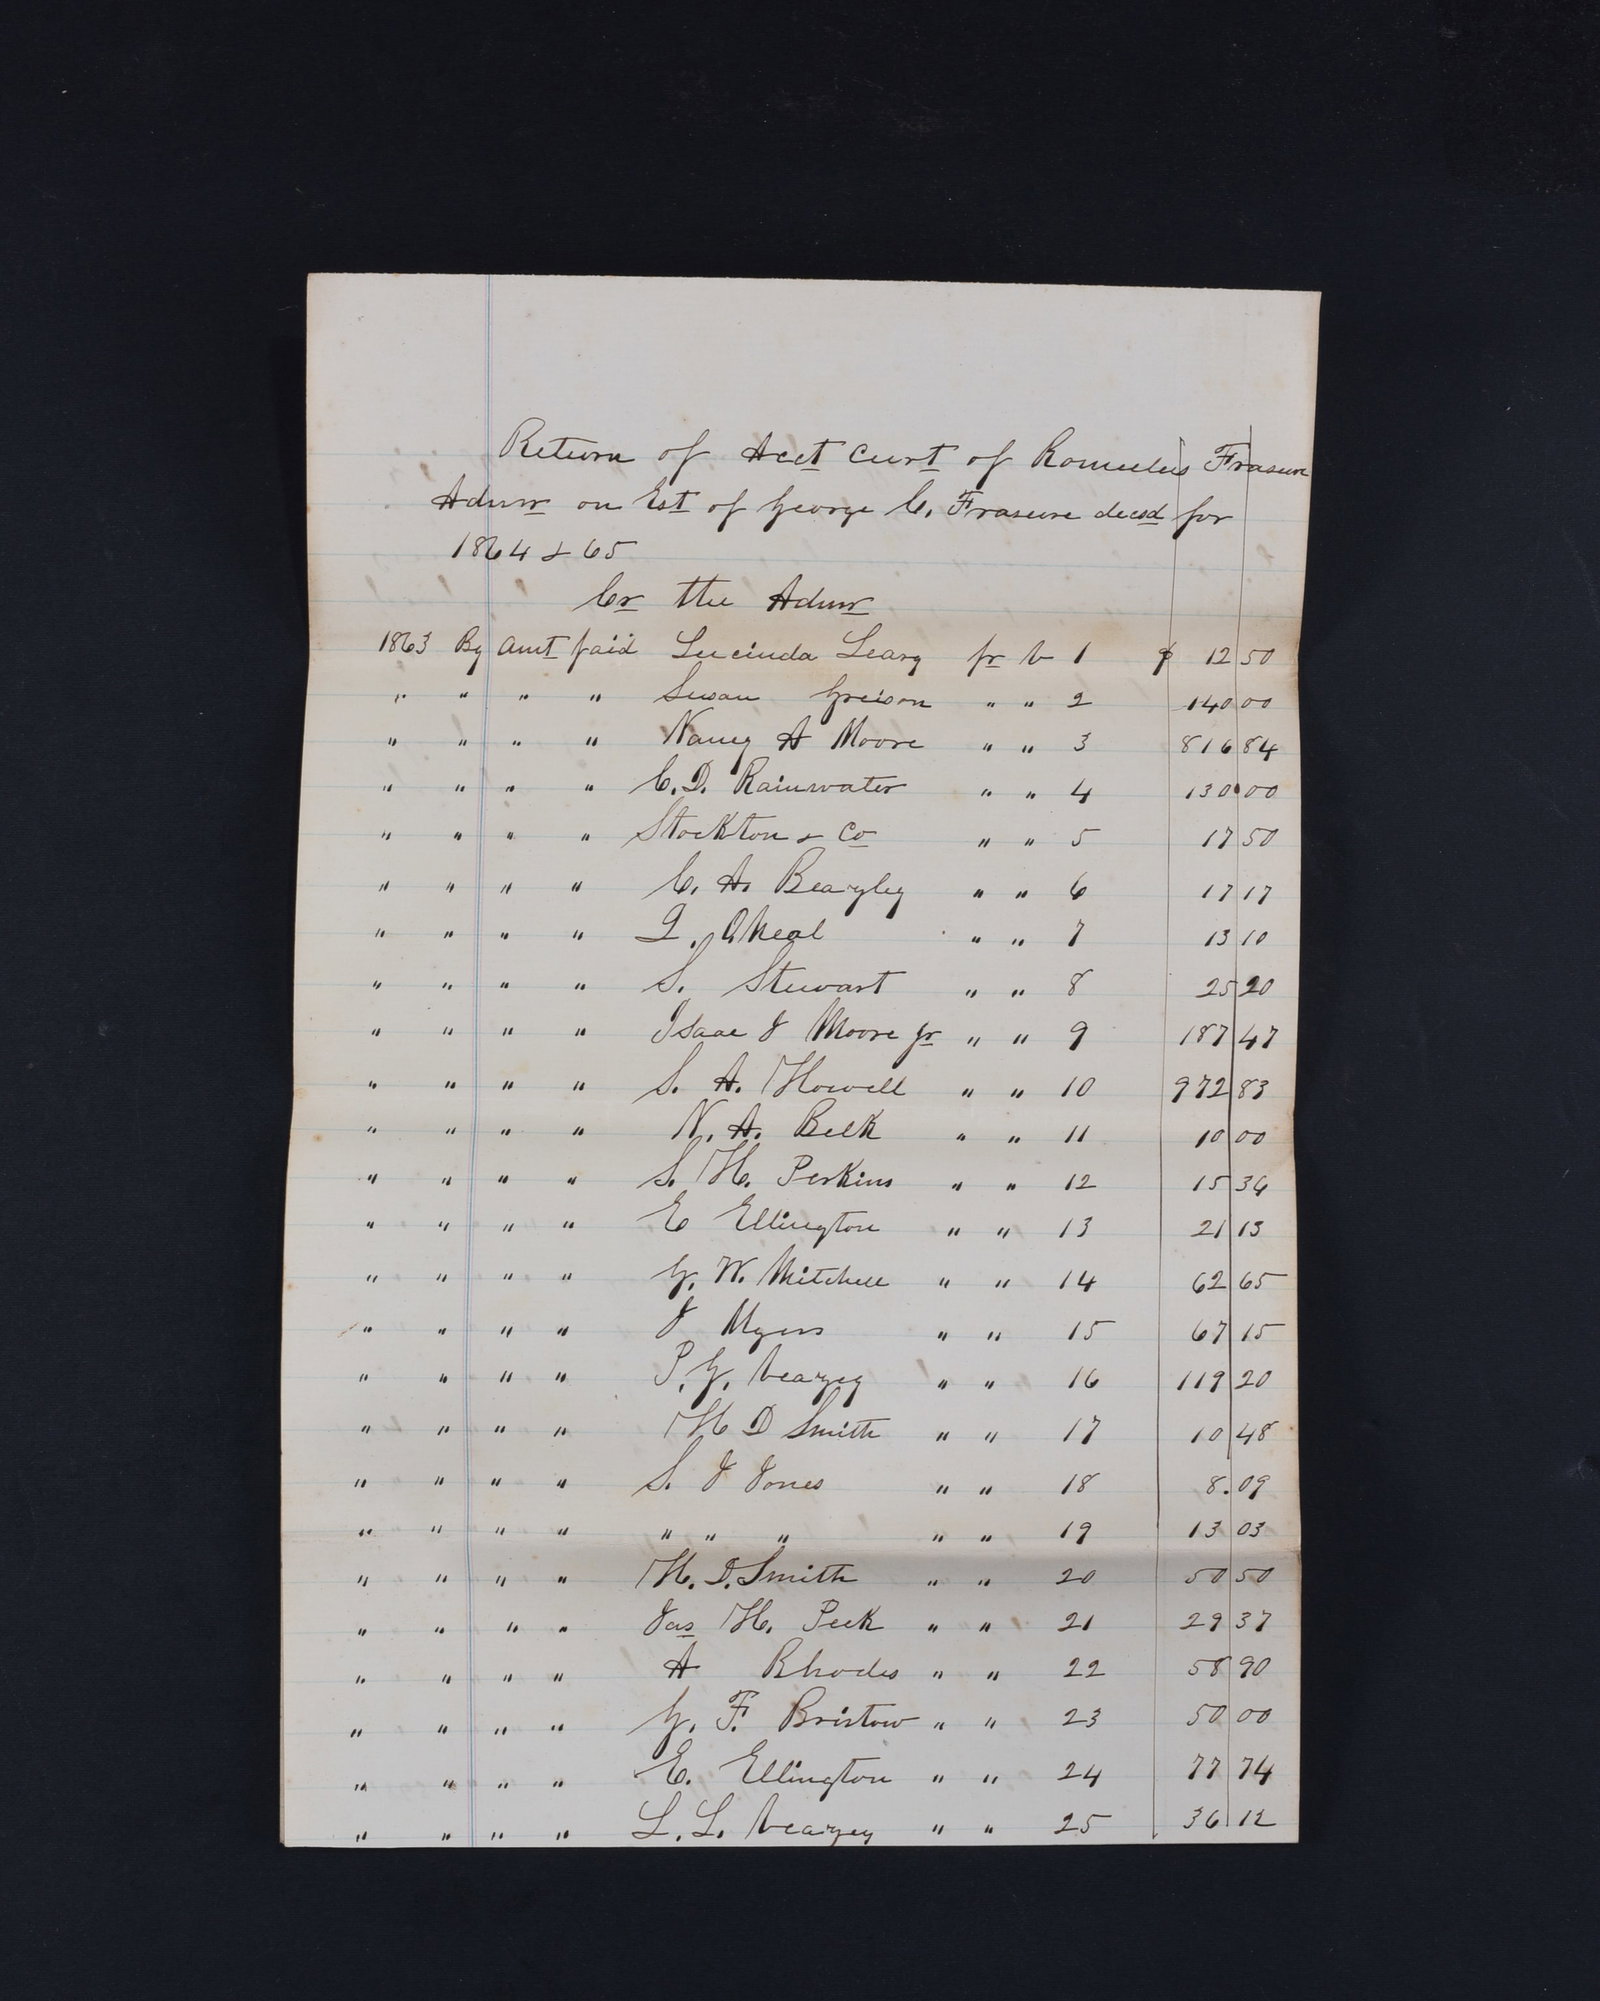 Return of Acct Curt of Romulus Frasure
Admr on Est of George C. Frasure decsd for
1864 & 65
Cr the Admr
1863 By amt paid Lucinda Leary pr v 1 $ 12 50
" " " " Susan Greison " " 2 140 00
" " " " Nancy A Moore " " 3 816 84
" " " " C. D. Rainwater " " 4 130 00
" " " " Stockton & Co " " 5 17 50
" " " " C. A. Beazley " " 6 17 17
" " " " Q. ONeal " " 7 13 10
" " " " S. Stewart " " 8 25 20
" " " " Isaac J Moore Jr " " 9 187 47
" " " " S. A. Howell " " 10 972 83
" " " " N. A. Belk " " 11 10 00
" " " " S. H. Perkins " " 12 15 34
" " " " E Ellington " " 13 21 13
" " " " G. W. Mitchell " " 14 62 65
" " " " J Myers " " 15 67 15
" " " " P. G. Veazey " " 16 119 20
" " " " H D Smith " " 17 10 48
" " " " S. J Jones " " 18 8.09
" " " " " " " " " 19 13 03
" " " " H. D. Smith " " 20 50 50
" " " " Jas H. Peek " " 21 29 37
" " " " A Rhodes " " 22 58 90
" " " " G. F. Bristow " " 23 50 00
" " " " E. Ellington " " 24 77 74
" " " " L. L. Veazey " " 25 36 12